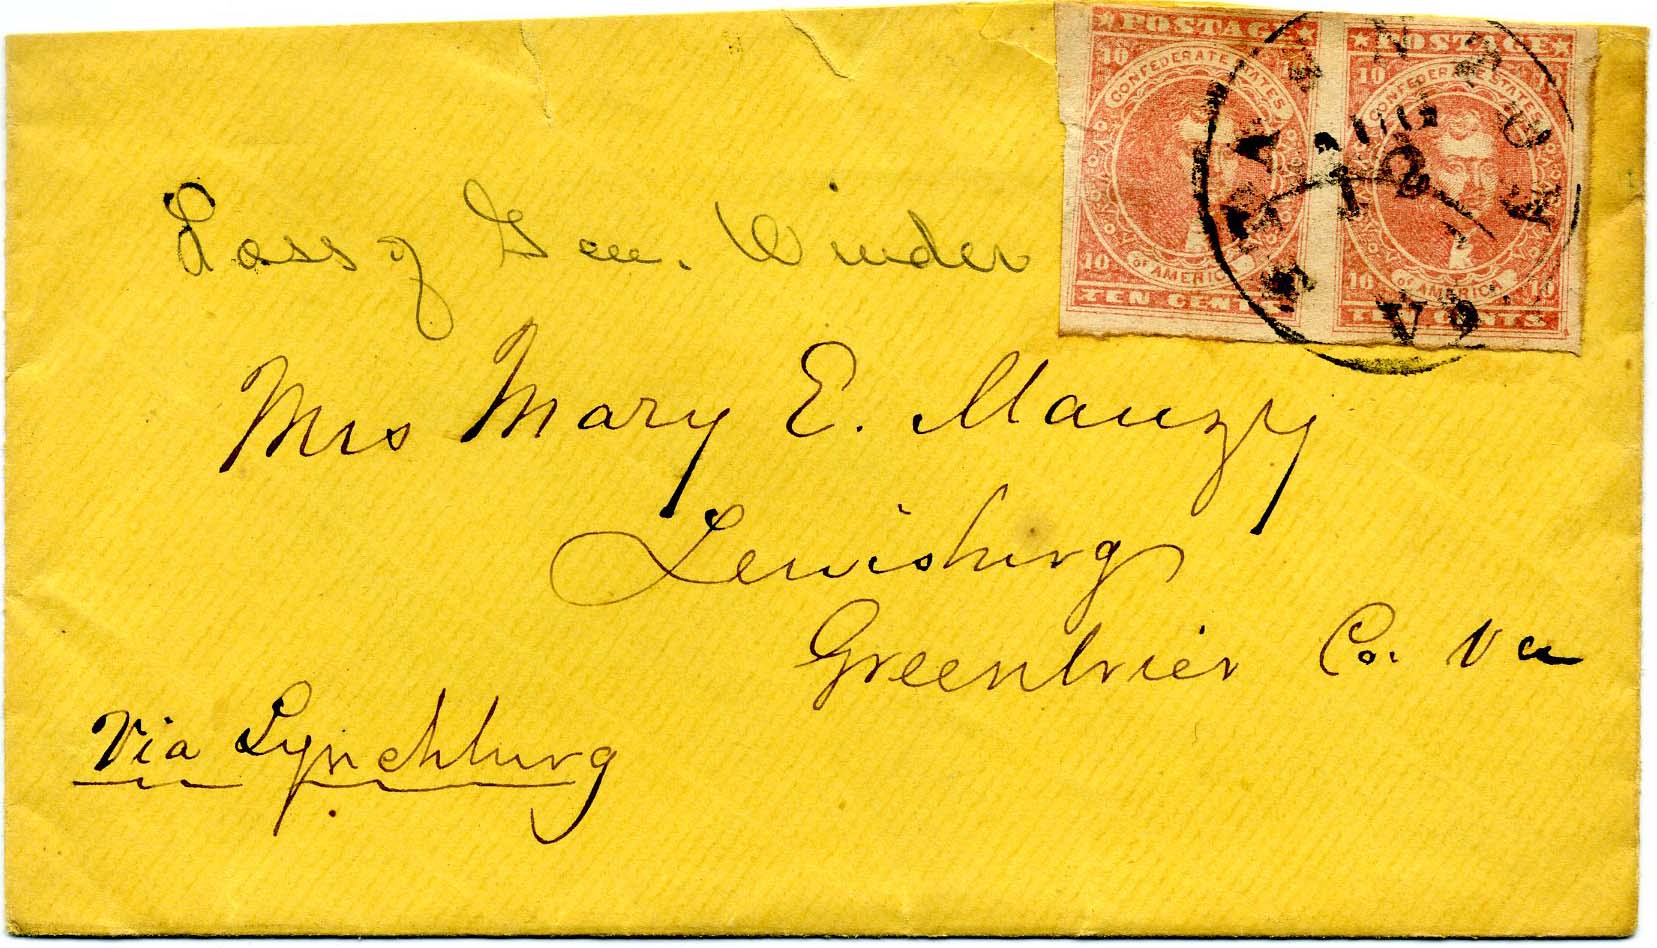 ★ POSTAGE ★ ★ POSTAGE ★
10 10 10 10
CONFEDERATE STATES CONFEDERATE STATES
OF AMERICA OF AMERICA
10 10 10 10
TEN CENTS TEN CENTS
STAUNTON
AUG
12
VA
Loss of Gen. Winder
Mrs Mary E. Mauzy
Lewisburg
Greenbrier Co. Va
Via Lynchburg